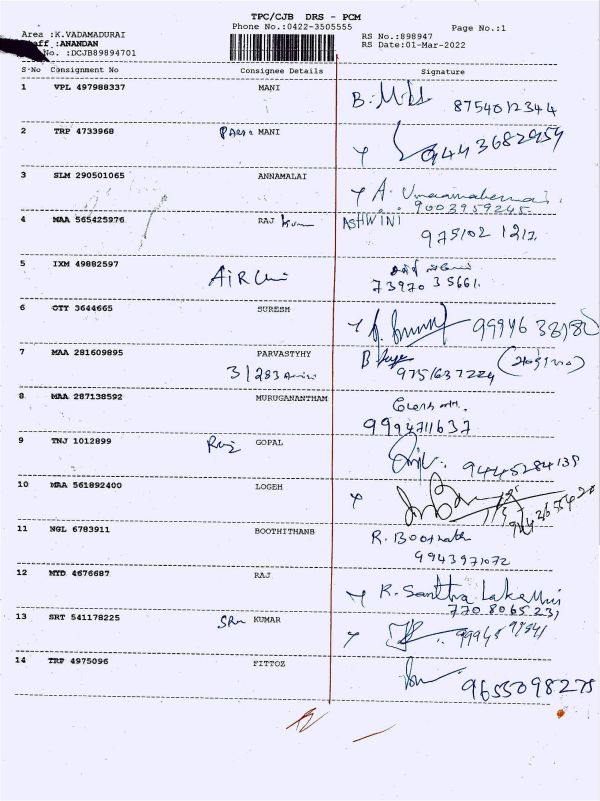 TPC/CJB DRS - PCM
Phone No.:0422-3505555
Page No.:1
Area :K.VADAMADURAI
Staff :ANANDAN
No. :DCJB89894701
RS No.:898947
RS Date:01-Mar-2022
S.No Consignment No Consignee Details Signature
1 VPL 497988337 MANI 8754012344
2 TRP 4733968 MANI 9443682959
3 SLM 290501065 ANNAMALAI A. Umamahe
9003959245
4 MAA 565425976 RAJ Kum ASHWINI
975102 1217
5 IXM 49882597
73970 35661
6 OTT 3644665 SURESH
7 MAA 281609895 PARVASTYHY
3/283 9751637224
8 MAA 287138592 MURUGANANTHAM
9994711637
9 TNJ 1012899 Raj GOPAL 9445284139
10 MAA 561892400 LOGEH
11 NGL 6783911 BOOTHITHANB R. Boopath
9943971072
12 MYD 4676687 RAJ R. Santhra Lakshmi
7708065231
13 SRT 541178225 KUMAR
14 TRP 4975096 FITTOZ
9655098275